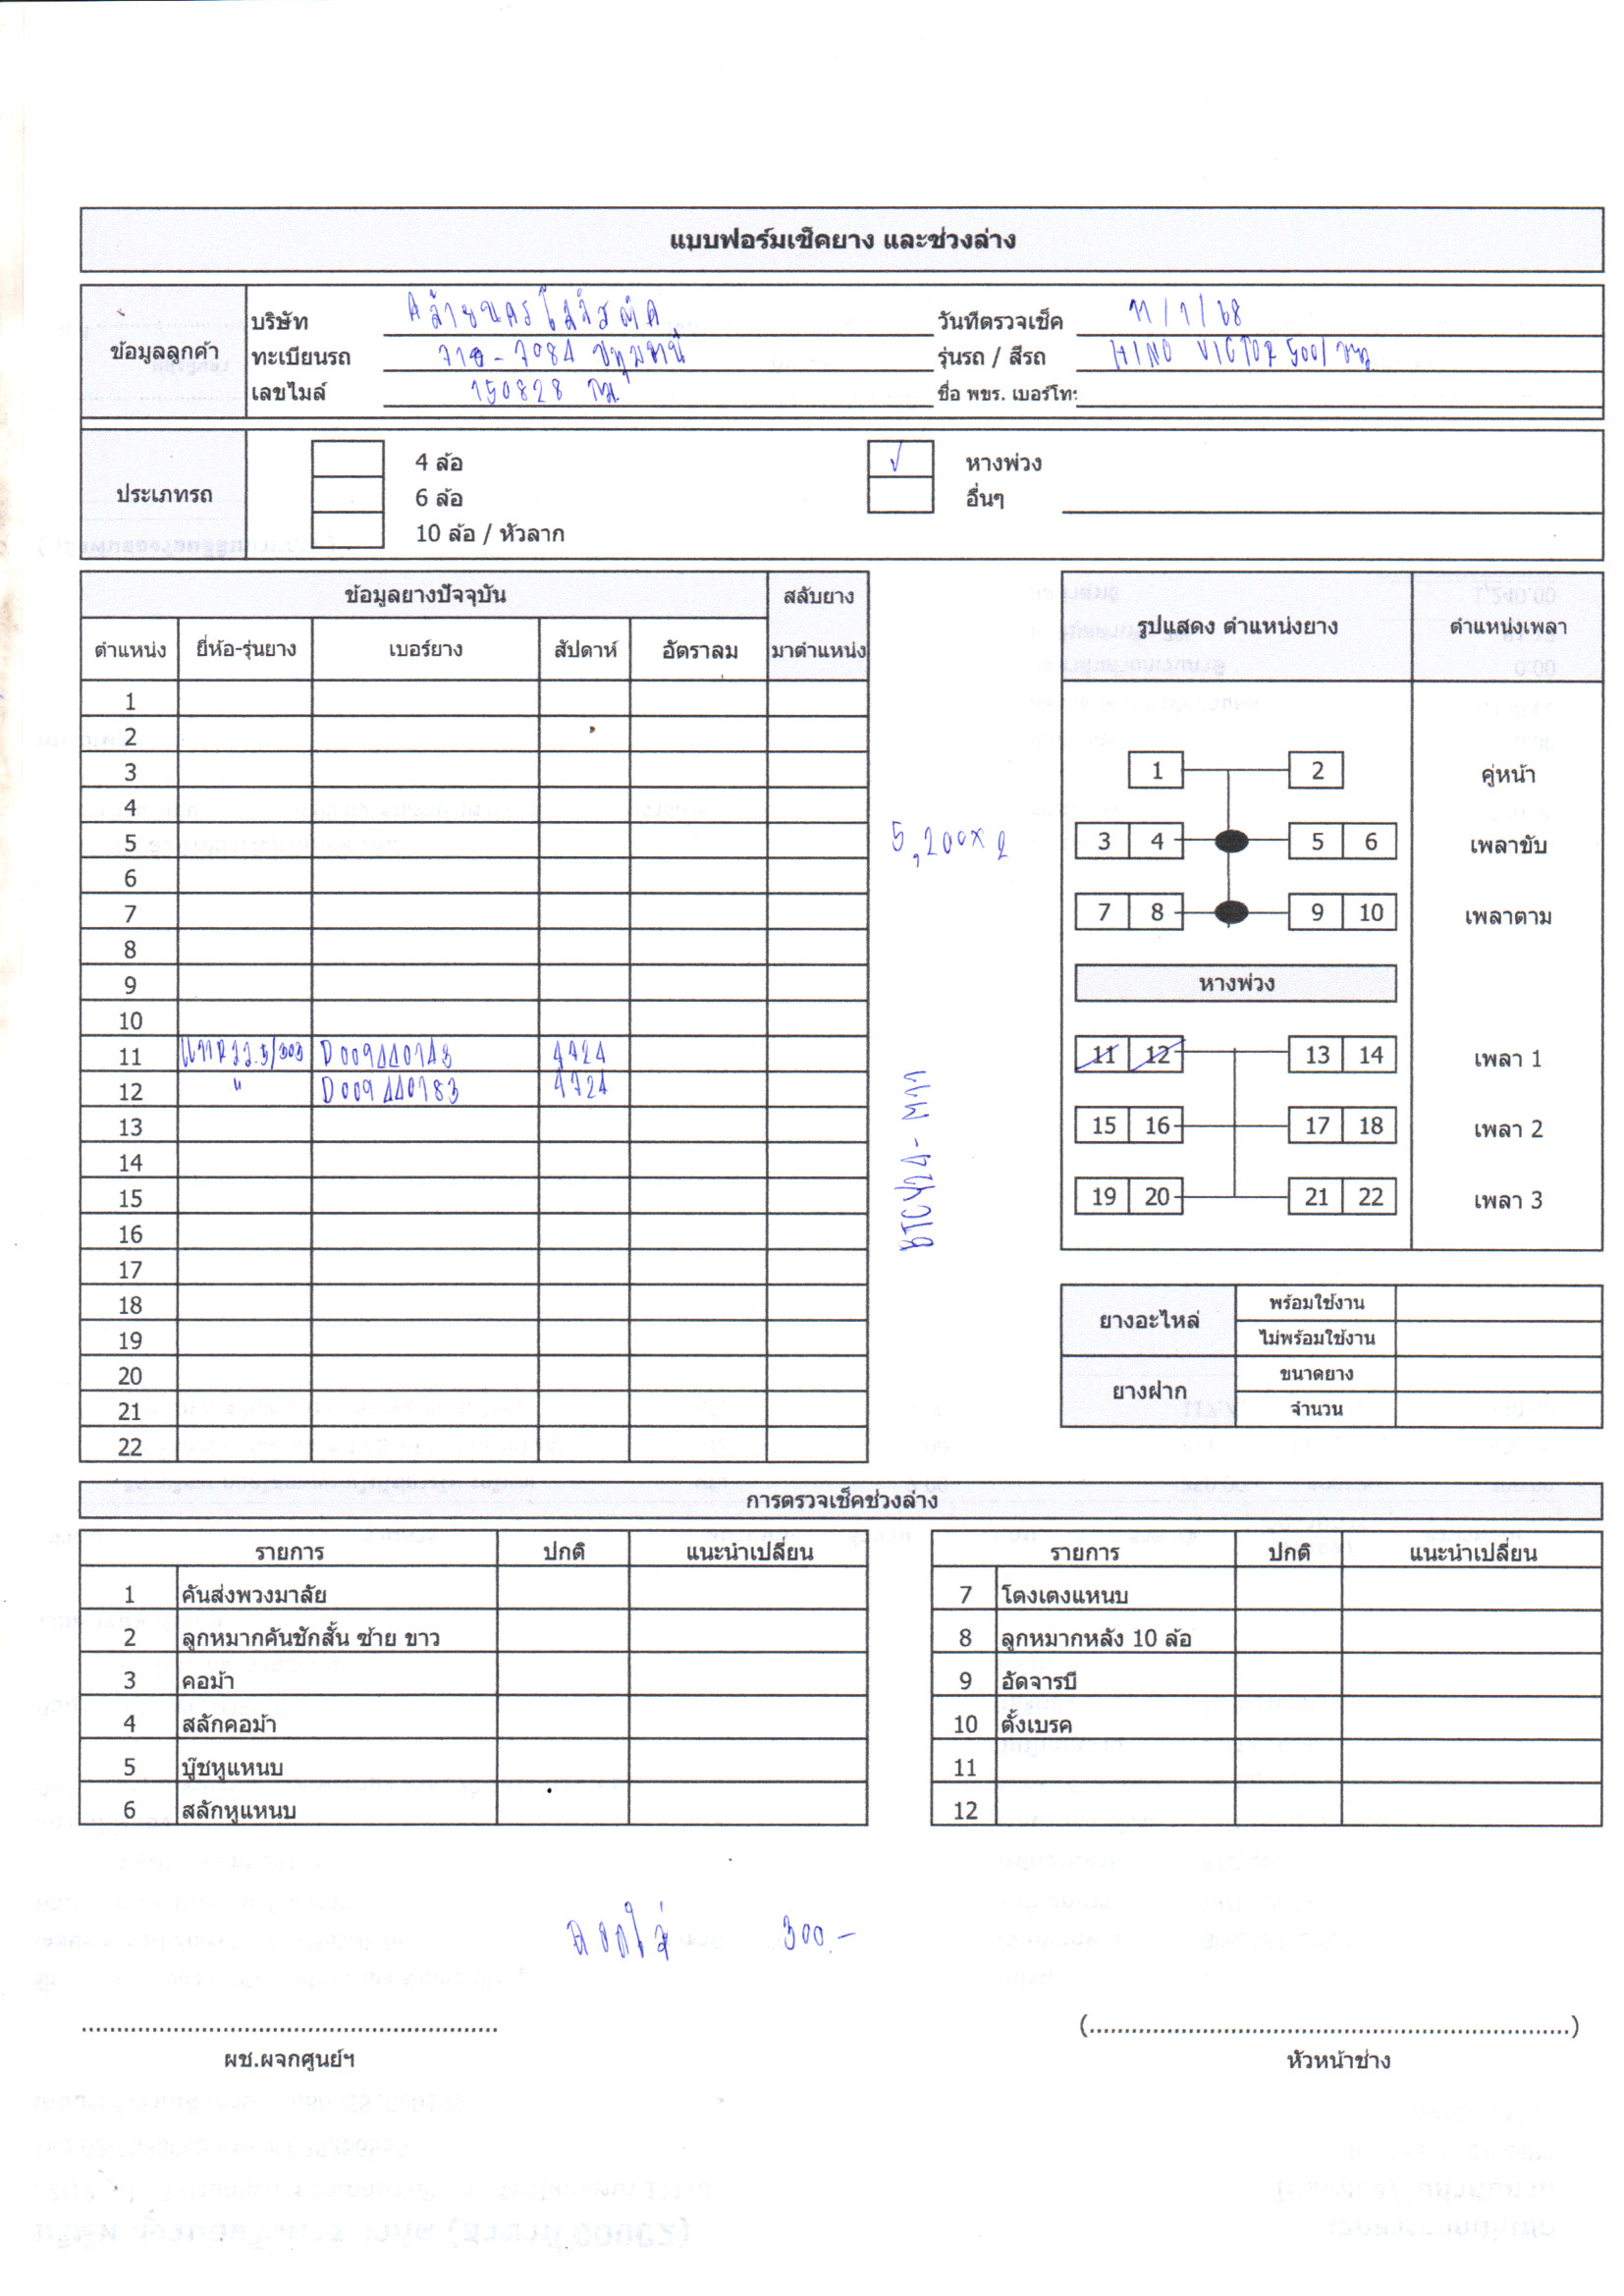 แบบฟอร์มเช็คยาง และช่วงล่าง
ข้อมูลลูกค้า
บริษัท
วันที่ตรวจเช็ค 11/1/68
ทะเบียนรถ 7084 ปทุมธานี
รุ่นรถ / สีรถ HINO VICTOR 500/
เลขไมล์ 150828 กม.
ชื่อ พขร. เบอร์โทร
ประเภทรถ
4 ล้อ
✓ หางพ่วง
6 ล้อ
อื่นๆ
10 ล้อ / หัวลาก
ข้อมูลยางปัจจุบัน สลับยาง
ตำแหน่ง ยี่ห้อ-รุ่นยาง เบอร์ยาง สัปดาห์ อัตราลม มาตำแหน่ง
1
2
3
4
5
6
7
8
9
10
11 D009440143 4724
12 " D009440183 4724
13
14
15
16
17
18
19
20
21
22
5,200x2
รูปแสดง ตำแหน่งยาง ตำแหน่งเพลา
1 2 คู่หน้า
3 4 5 6 เพลาขับ
7 8 9 10 เพลาตาม
หางพ่วง
11 12 13 14 เพลา 1
15 16 17 18 เพลา 2
19 20 21 22 เพลา 3
ยางอะไหล่ พร้อมใช้งาน
ไม่พร้อมใช้งาน
ยางฝาก ขนาดยาง
จำนวน
การตรวจเช็คช่วงล่าง
รายการ ปกติ แนะนำเปลี่ยน
1 คันส่งพวงมาลัย
2 ลูกหมากคันชักสั้น ซ้าย ขาว
3 คอม้า
4 สลักคอม้า
5 บู๊ชหูแหนบ
6 สลักหูแหนบ
รายการ ปกติ แนะนำเปลี่ยน
7 โตงเตงแหนบ
8 ลูกหมากหลัง 10 ล้อ
9 อัดจารบี
10 ตั้งเบรค
11
12
ถอดใส่ 300.-
ผช.ผจกศูนย์ฯ
(..........)
หัวหน้าช่าง